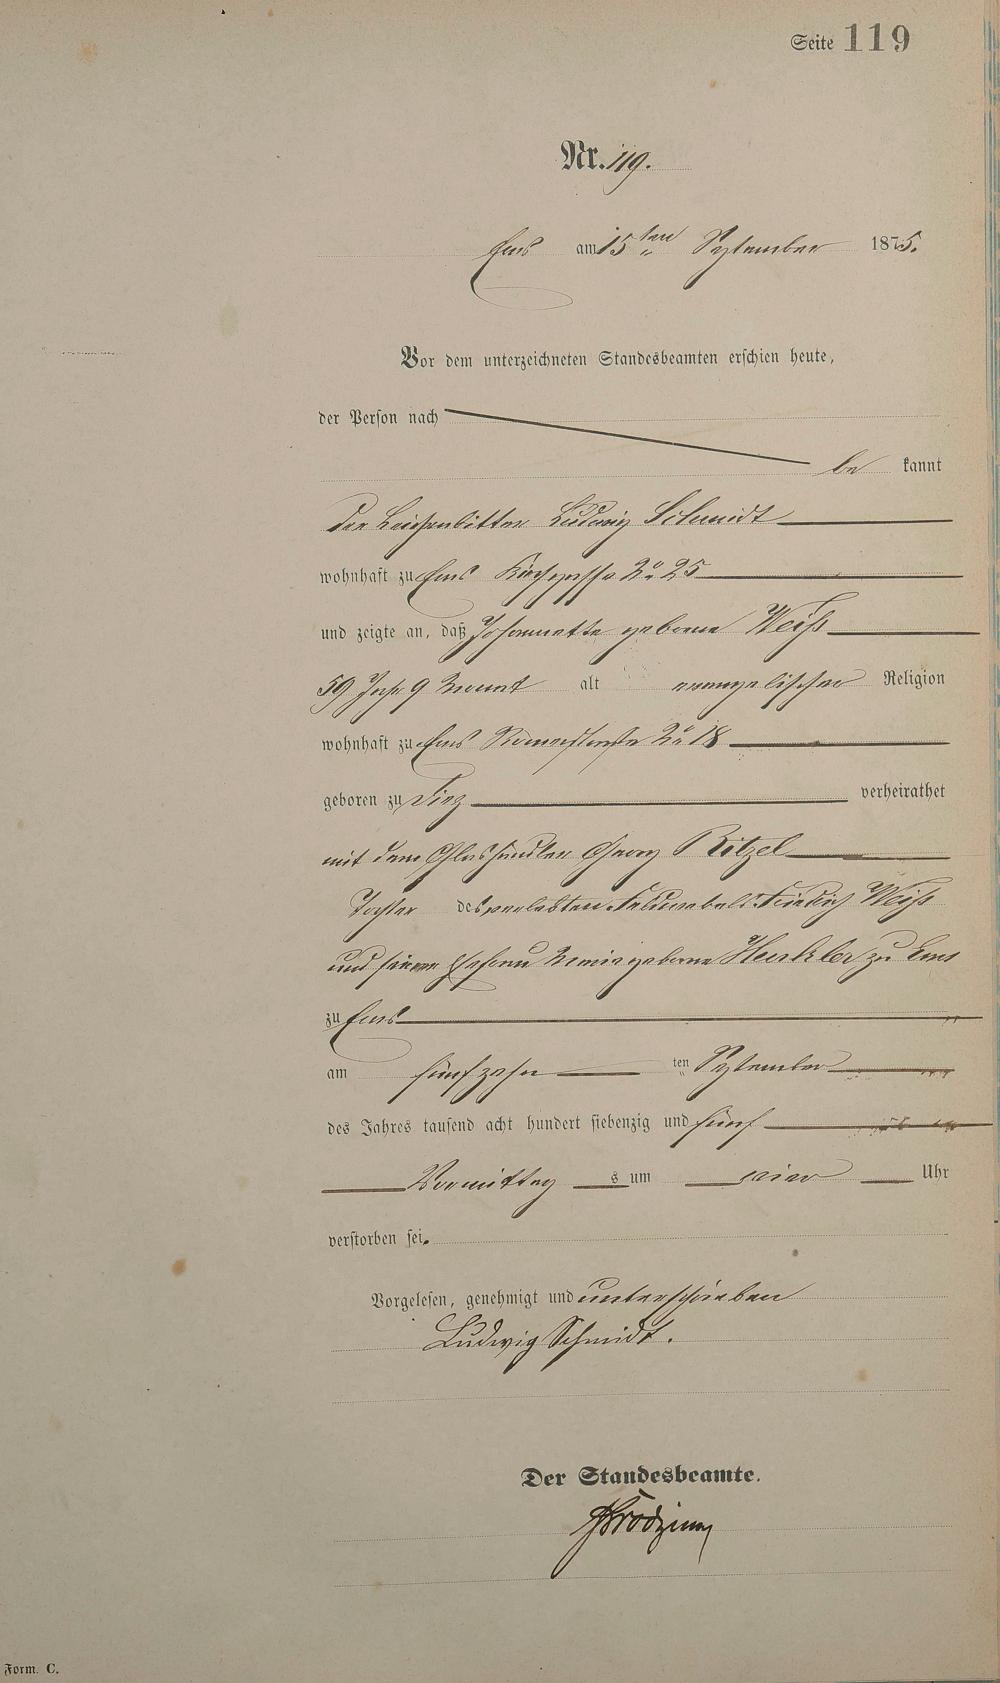 Seite 119
Nr. 119.
Ems am 15ten September 1875.
Vor dem unterzeichneten Standesbeamten erschien heute,
der Person nach
be kannt
der Leichenbitter Ludwig Schmidt
wohnhaft zu Ems Kirchgasse No 25
und zeigte an, daß Johannette geborne Weiß
59 Jahr 9 Monat alt evangelischer Religion
wohnhaft zu Ems Römerstraße No 18
geboren zu Diez verheirathet
mit dem Glashändler Georg Ritzel
Tochter des verlebten Feldwebels Friedrich Weiß
und seiner Ehefrau Maria geborne zu Ems
zu Ems
am fünfzehn ten September
des Jahres tausend acht hundert siebenzig und fünf
Vormittag s um vier Uhr
verstorben sei.
Vorgelesen, genehmigt und unterschrieben
Ludwig Schmidt.
Der Standesbeamte.
Form. C.